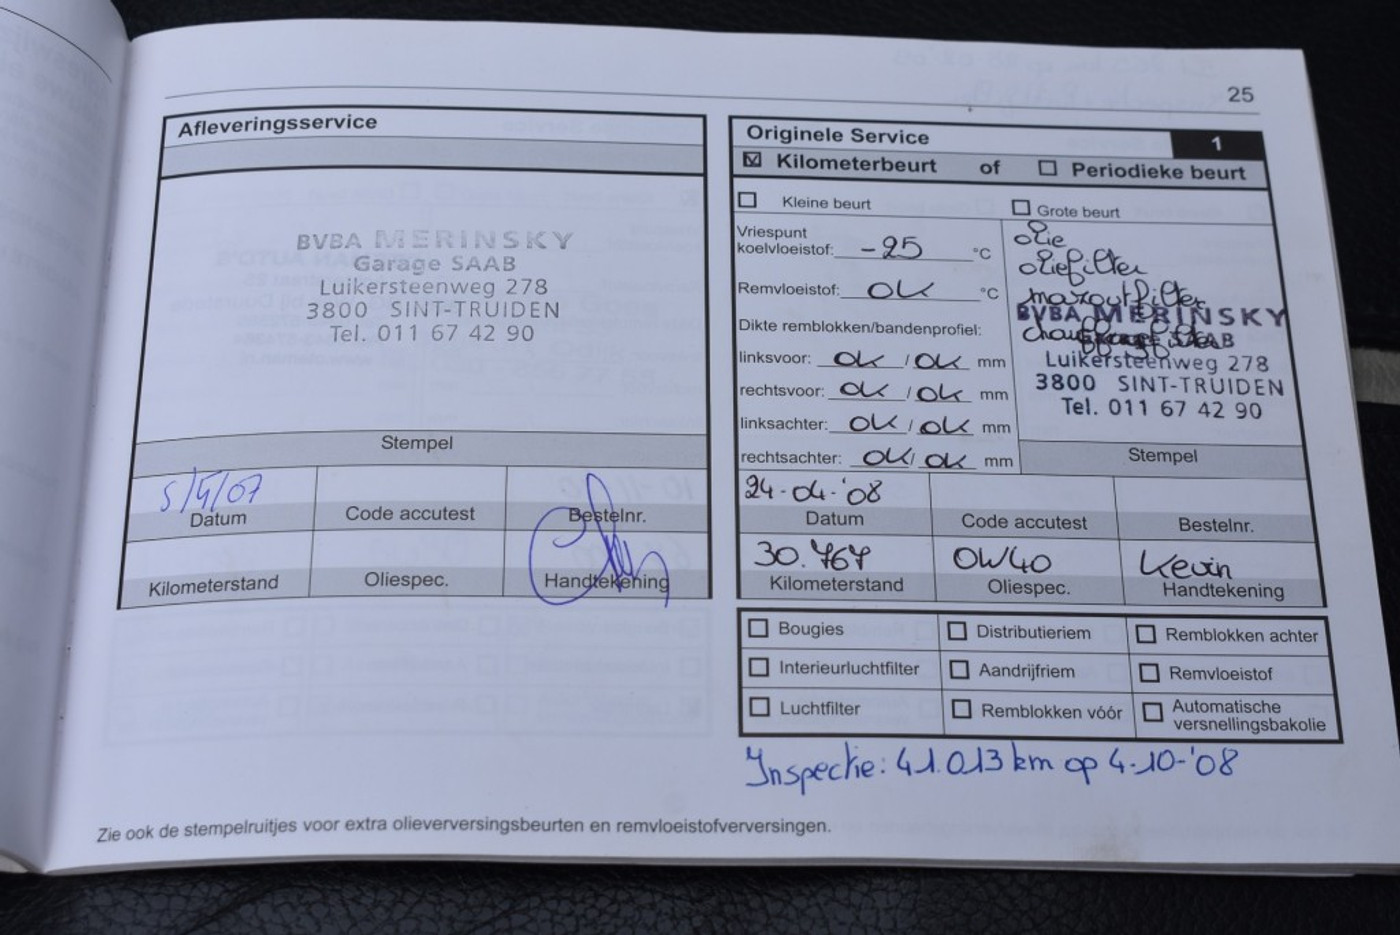 25
Afleveringsservice
BVBA MERINSKY
Garage SAAB
Luikersteenweg 278
3800 SINT-TRUIDEN
Tel. 011 67 42 90
Stempel
Datum
Code accutest
Bestelnr.
Kilometerstand
Oliespec.
Handtekening
Originele Service
1
Kilometerbeurt of Periodieke beurt
Kleine beurt
Grote beurt
Vriespunt
koelvloeistof: -25 °C
Remvloeistof: OK °C
Dikte remblokken/bandenprofiel:
linksvoor: OK / OK mm
rechtsvoor: OK / OK mm
linksachter: OK / OK mm
rechtsachter: OK / OK mm
olie
oliefilter
mazoutfilter
BVBA MERINSKY
SAAB
Luikersteenweg 278
3800 SINT-TRUIDEN
Tel. 011 67 42 90
Stempel
24-04-'08
Datum
Code accutest
Bestelnr.
30.767
OW40
Kevin
Kilometerstand
Oliespec.
Handtekening
Bougies
Distributieriem
Remblokken achter
Interieurluchtfilter
Aandrijfriem
Remvloeistof
Luchtfilter
Remblokken vóór
Automatische
versnellingsbakolie
Inspectie: 41.013 km op 4-10-'08
Zie ook de stempelruitjes voor extra olieverversingsbeurten en remvloeistofverversingen.